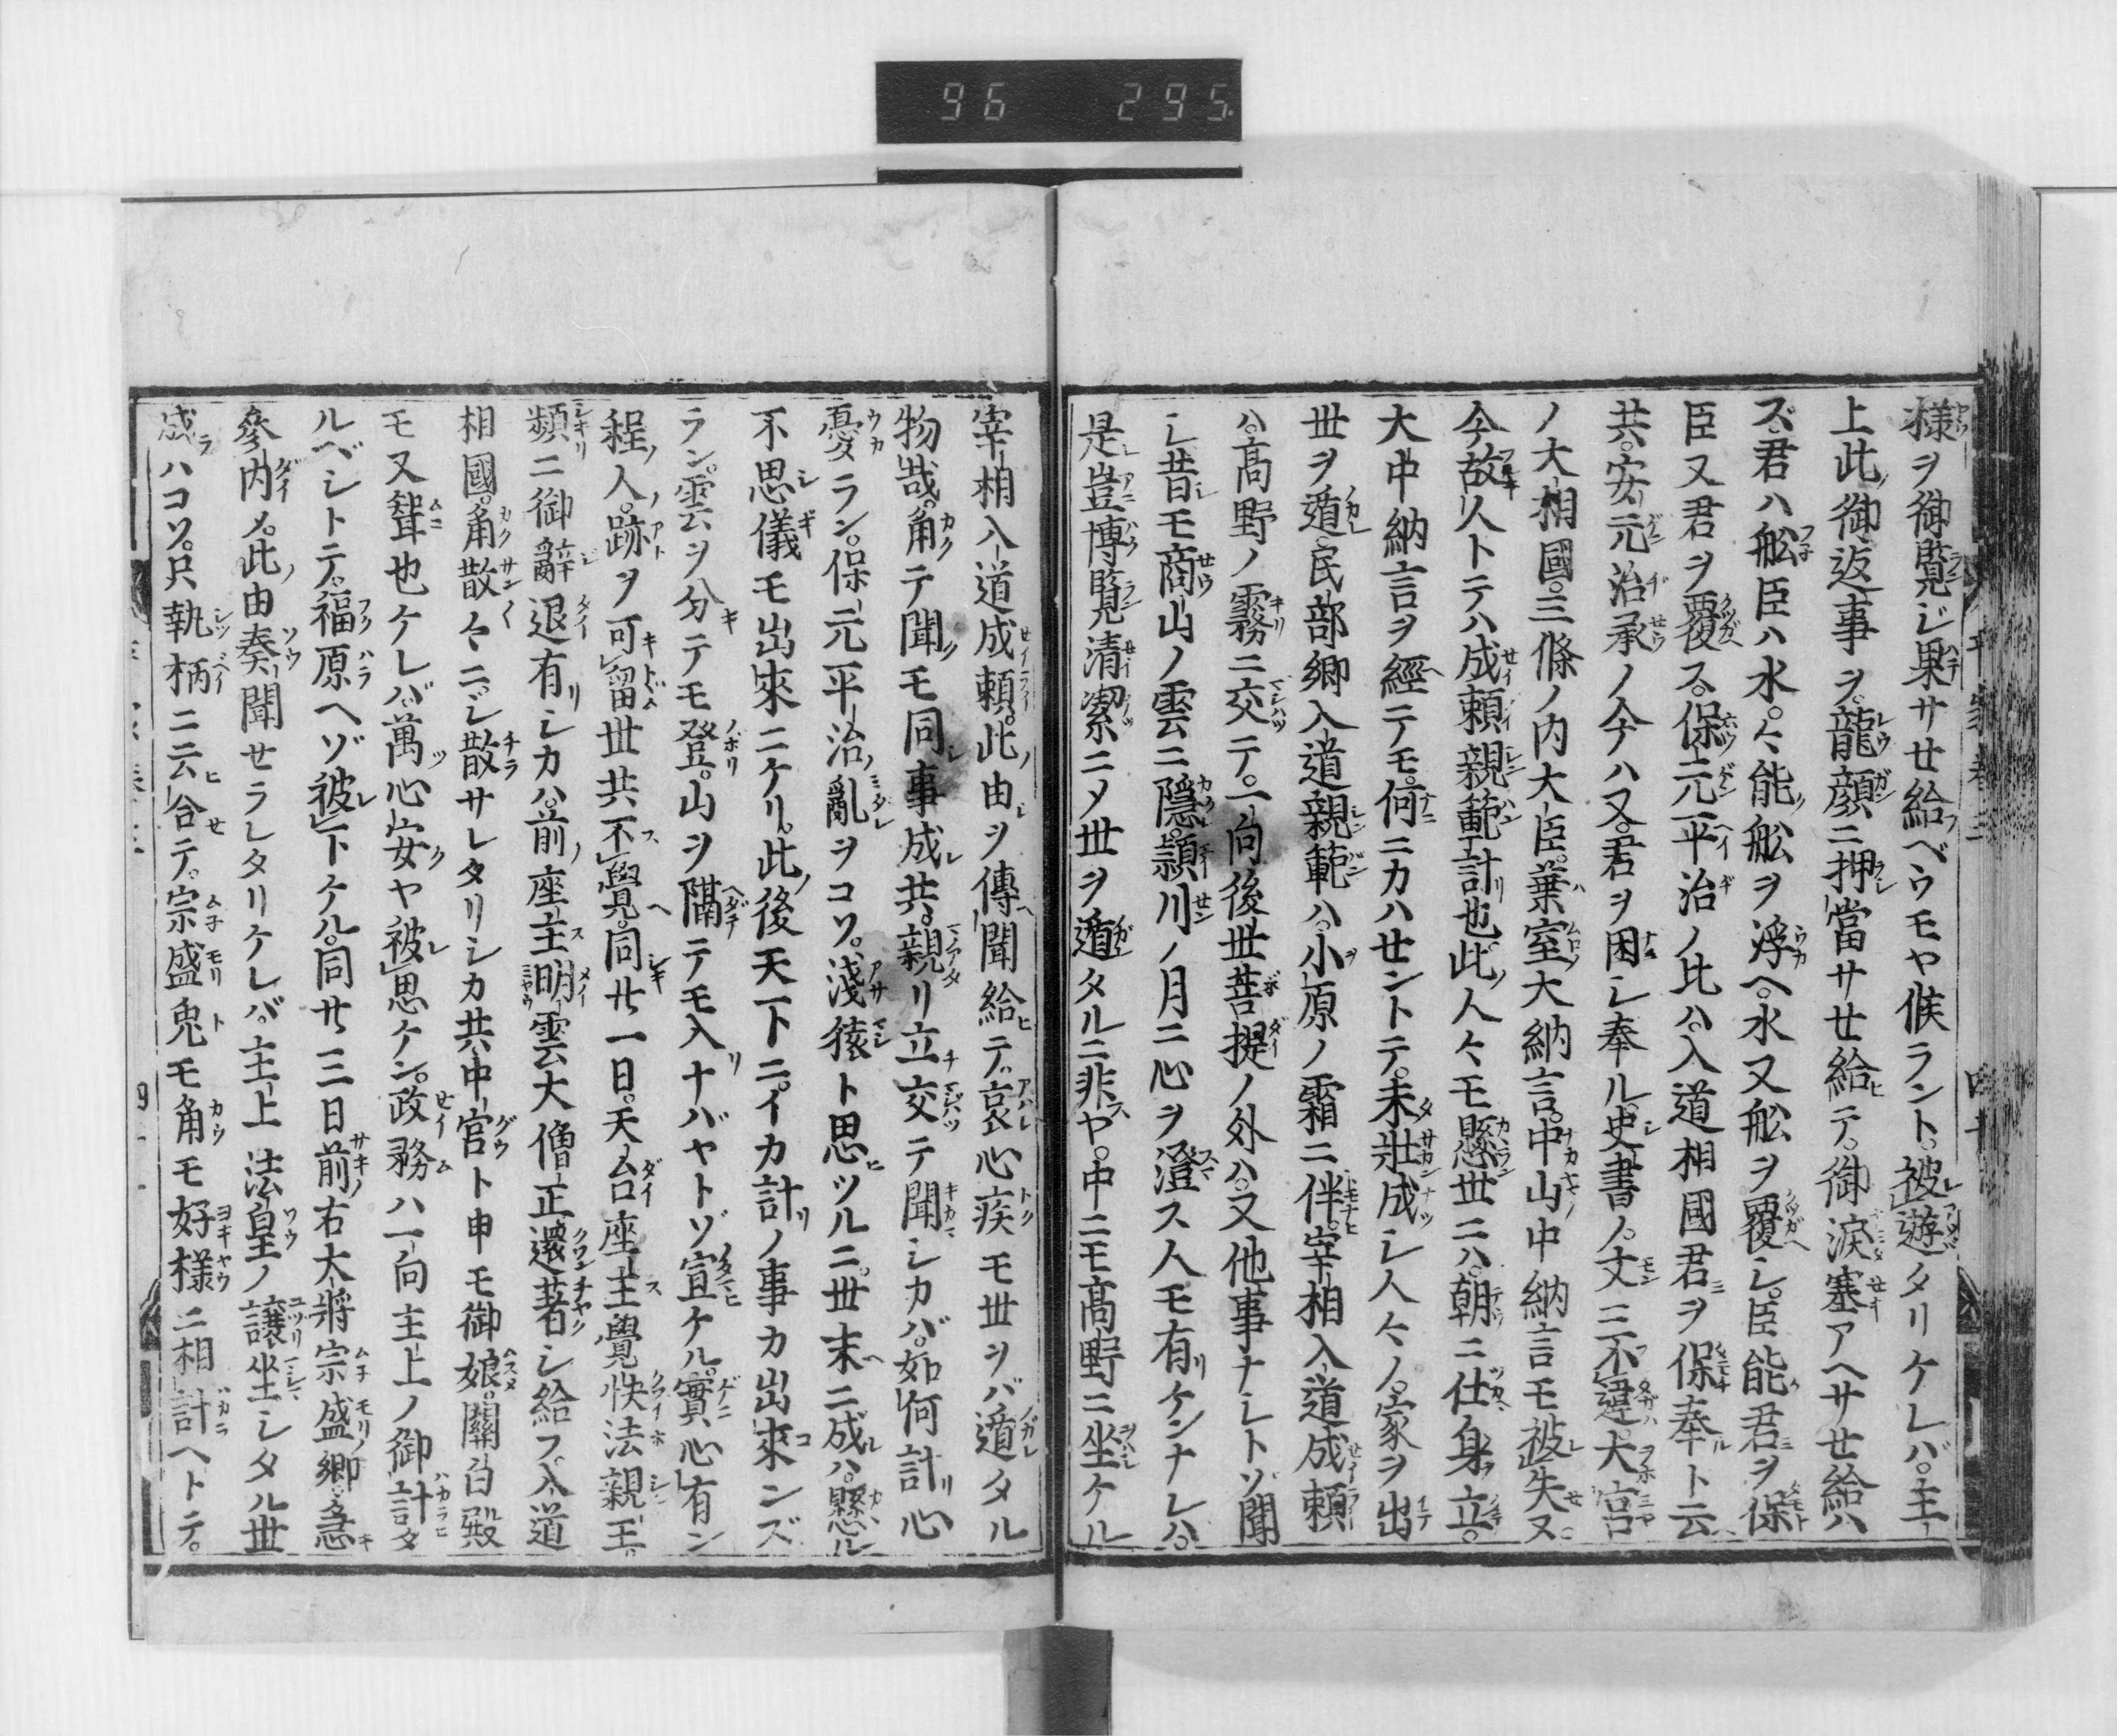 96 295
様ヲ御覧ジ果サせ給ベウモヤ候ラント。被遊タリケレバ。主
上此御返事ヲ。龍顔ニ押當サせ給テ。御涙塞アヘサせ給ハ
ズ。君ハ舩臣ハ水。々能舩ヲ浮ヘ。水又舩ヲ覆シ。臣能君ヲ保
臣又君ヲ覆ス。保元平治ノ比ハ。入道相國君ヲ保奉ト云
共。安元治承ノ今ハ又。君ヲ困シ奉ル。史書ノ。文ニ不違。大宮
ノ大相國。三條ノ内大臣。葉室大納言。中山中納言モ被失ヌ
今故人トテハ成頼親範計也。此人々モ懸世ニハ。朝ニ仕身立。
大中納言ヲ經テモ。何ニカハせントテ。未壯成シ人々ノ。家ヲ出
世ヲ遁。民部卿入道親範ハ。小原ノ霜ニ伴。宰相入道成頼
ハ。高野ノ霧ニ交テ。一向後世菩提ノ外ハ。又他事ナシトゾ聞
シ昔モ商山ノ雲ニ隱。頴川ノ月ニ心ヲ澄ス人モ有ケンナレハ。
是豈博覧清潔ニメ世ヲ遁タルニ非ヤ。中ニモ高野ニ坐ケル
宰相入道成頼。此由ヲ傳聞給テ。哀心疾モ世ヲバ遁タル
物哉。角テ聞モ同事成共。親リ立交テ聞シカバ。如何計心
憂ラン。保元平治ノ亂ヲコソ。淺猿ト思ツルニ。世末ニ成ハ。懸ル
不思儀モ出來ニケリ。此後天下ニ。イカ計ノ事カ出來ンズ
ラン。雲ヲ分テモ登。山ヲ隔テモ入ナバヤトゾ宣ケル。實心有ン
程人。跡ヲ可留世共不覺。同廿一日。天台座主覺快法親王。
頻ニ御辭退有シカハ。前座主明雲大僧正還著シ給フ。入道
相國。角散々ニシ散サレタリシカ共。中宮ト申モ御娘。關白殿
モ又聟也ケレバ。萬心安ヤ被思ケン。政務ハ一向主上ノ御計タ
ルベシトテ。福原ヘゾ被下ケル。同廿三日前右大將宗盛卿。急
參内メ。此由奏聞せラレタリケレバ。主上法皇ノ譲坐シタル世
成ハコソ。只執柄ニ云合テ。宗盛兎モ角モ好様ニ相計ヘトテ。